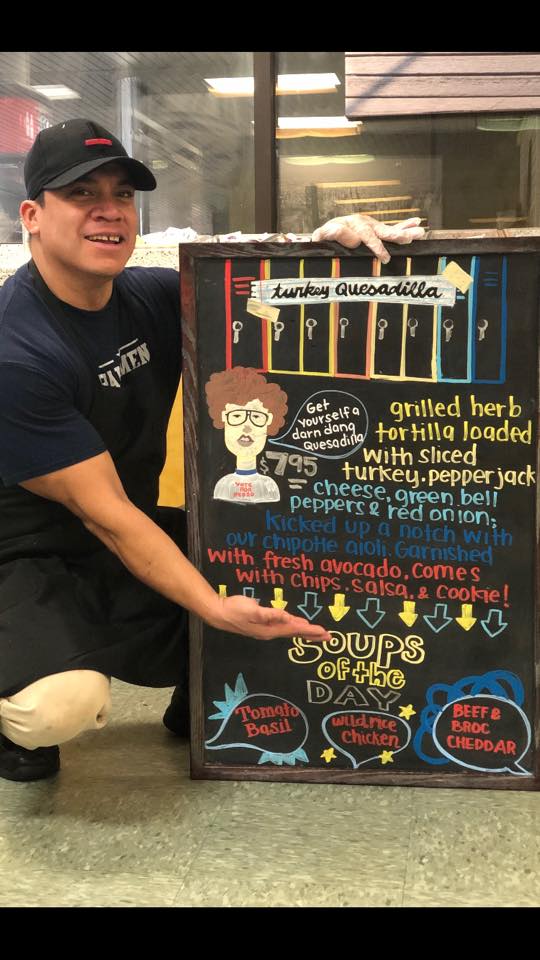 turkey Quesadilla
Get
yourself a
darn dang
Quesadilla
$7.95
VOTE
FOR
PEDRO
grilled herb
tortilla loaded
with sliced
turkey, pepperjack
cheese, green bell
peppers & red onion;
Kicked up a notch with
our chipotle aioli. Garnished
with fresh avocado. Comes
with chips, salsa, & cookie!
SOUPS
of the
DAY
Tomato
Basil
wild rice
chicken
BEEF &
BROC
CHEDDAR